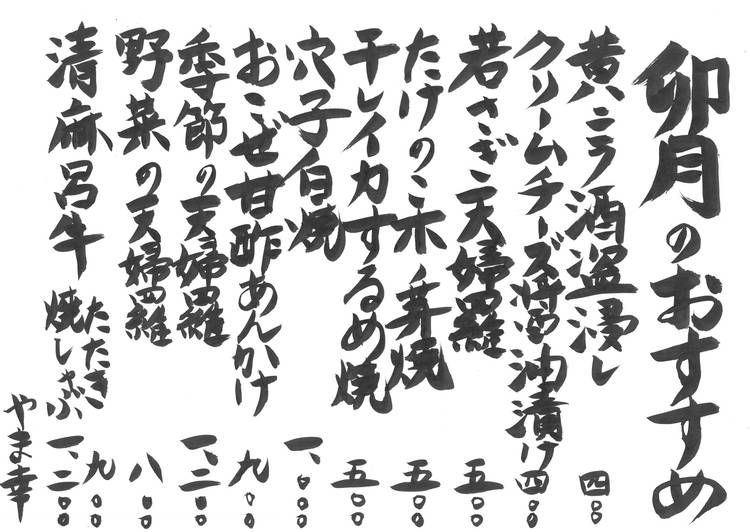 卯月のおすすめ
黄ニラ酒盗浸し 四〇〇
クリームチーズ醤油漬け 四〇〇
若さぎ天婦羅 五〇〇
たけのこ木ノ芽焼 五〇〇
干しイカするめ焼 五〇〇
穴子白焼 一、〇〇〇
おこぜ甘酢あんかけ 九〇〇
季節の天婦羅 一、二〇〇
野菜の天婦羅 八〇〇
清麻呂牛 たたき 九〇〇
焼しゃぶ 一、二〇〇
やま幸